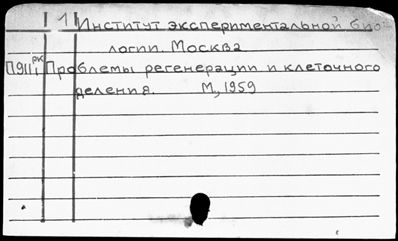 1 Институт экспериментальной био-
логии. Москва
П911, рк Проблемы регенерации и клеточного
деления. М, 1959